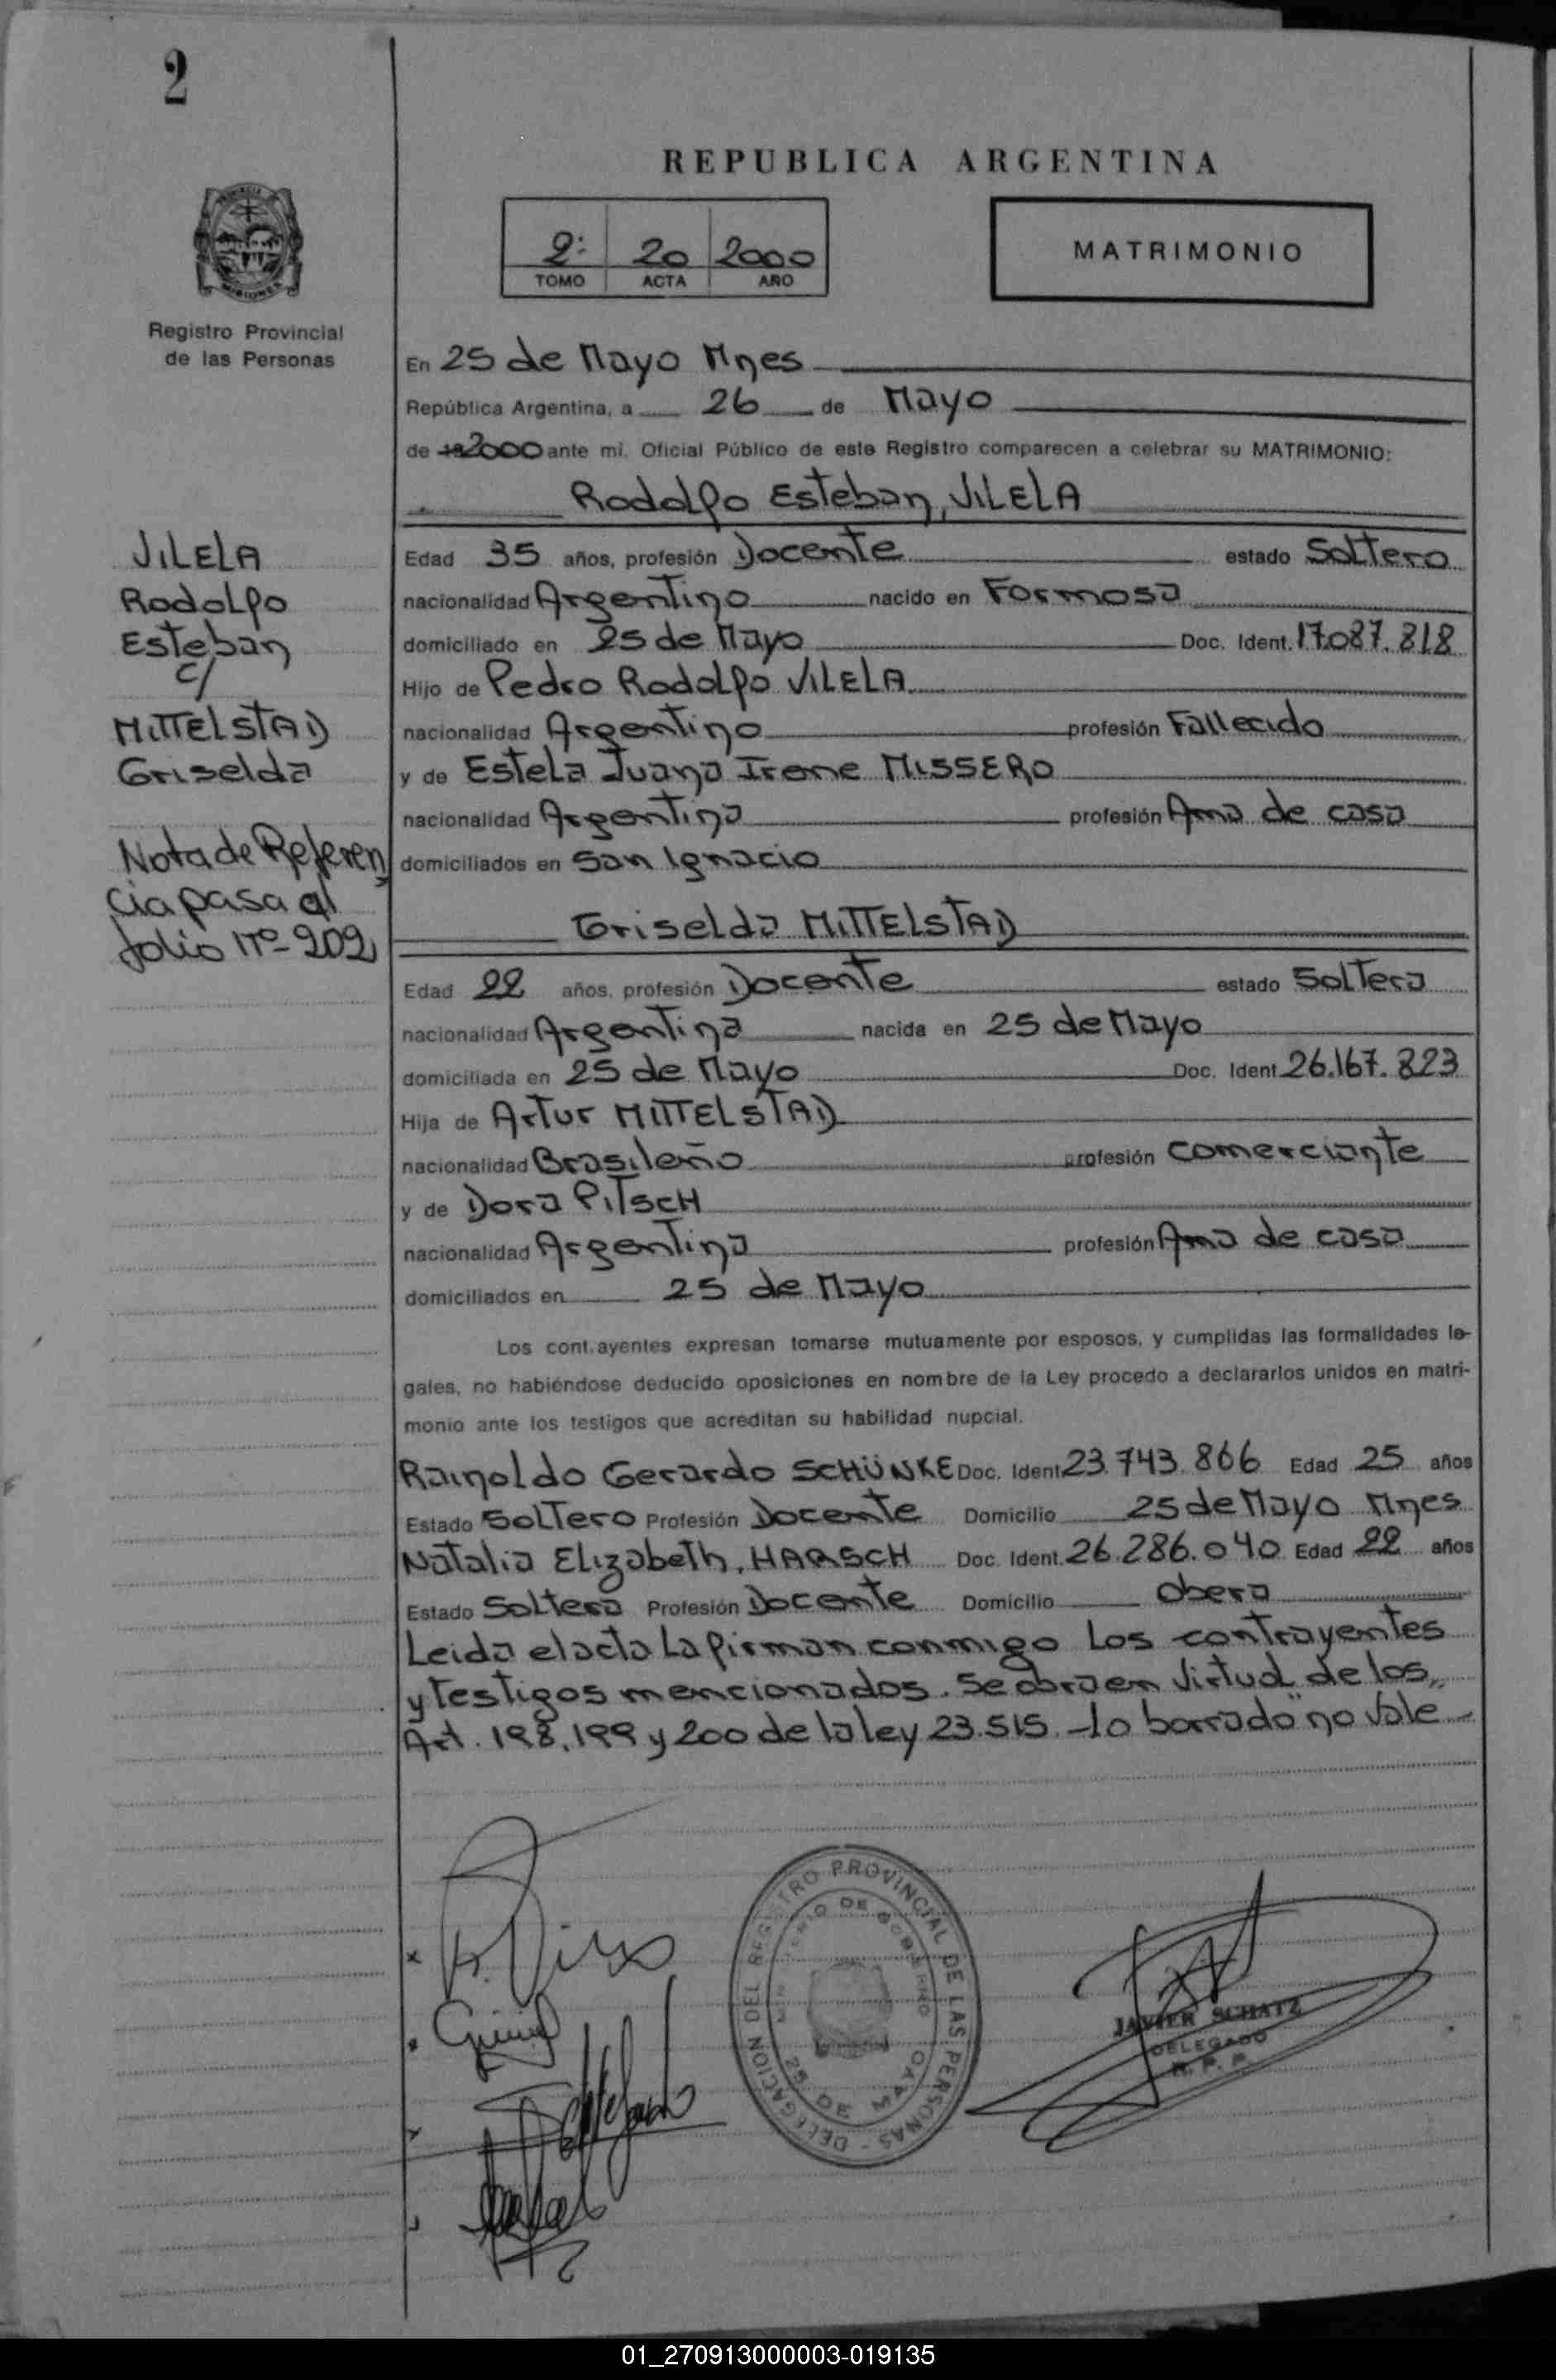 2
REPUBLICA ARGENTINA
2: 20 2000
TOMO ACTA AÑO
MATRIMONIO
Registro Provincial
de las Personas
En 25 de Mayo Mnes
República Argentina, a 26 de Mayo
de 19 2000 ante mi. Oficial Público de este Registro comparecen a celebrar su MATRIMONIO:
Rodolfo Esteban, VILELA
VILELA
Rodolfo
Esteban
c/
MITTELSTAD
Griselda
Nota de Referen
cia pasa al
folio Nº 202
Edad 35 años, profesión Docente estado Soltero
nacionalidad Argentino nacido en Formosa
domiciliado en 25 de Mayo Doc. Ident. 17.087.818
Hijo de Pedro Rodolfo VILELA
nacionalidad Argentino profesión Fallecido
y de Estela Juana Irene MISSERO
nacionalidad Argentina profesión Ama de casa
domiciliados en San Ignacio
Griselda MITTELSTAD
Edad 22 años, profesión Docente estado Soltera
nacionalidad Argentina nacida en 25 de Mayo
domiciliada en 25 de Mayo Doc. Ident 26.167.823
Hija de Artur MITTELSTAD
nacionalidad Brasileño profesión comerciante
y de Dora PITSCH
nacionalidad Argentina profesión Ama de casa
domiciliados en 25 de Mayo
Los contrayentes expresan tomarse mutuamente por esposos, y cumplidas las formalidades le-
gales, no habiéndose deducido oposiciones en nombre de la Ley procedo a declararlos unidos en matri-
monio ante los testigos que acreditan su habilidad nupcial.
Rainoldo Gerardo SCHÜNKE Doc. Ident 23.743.866 Edad 25 años
Estado Soltero Profesión Docente Domicilio 25 de Mayo Mnes
Natalia Elizabeth, HARSCH Doc. Ident. 26.286.040 Edad 22 años
Estado Soltera Profesión Docente Domicilio Obera
Leida el acta La firman conmigo Los contrayentes
y testigos mencionados. Se obra en virtud de los,
Art. 198, 199 y 200 de la ley 23.515. -lo borrado" no vale
DELEGACION DEL REGISTRO PROVINCIAL DE LAS PERSONAS -
MINISTERIO DE GOBIERNO
25 DE MAYO
JAVIER SCHATZ
DELEGADO
R. P. P.
01_270913000003-019135